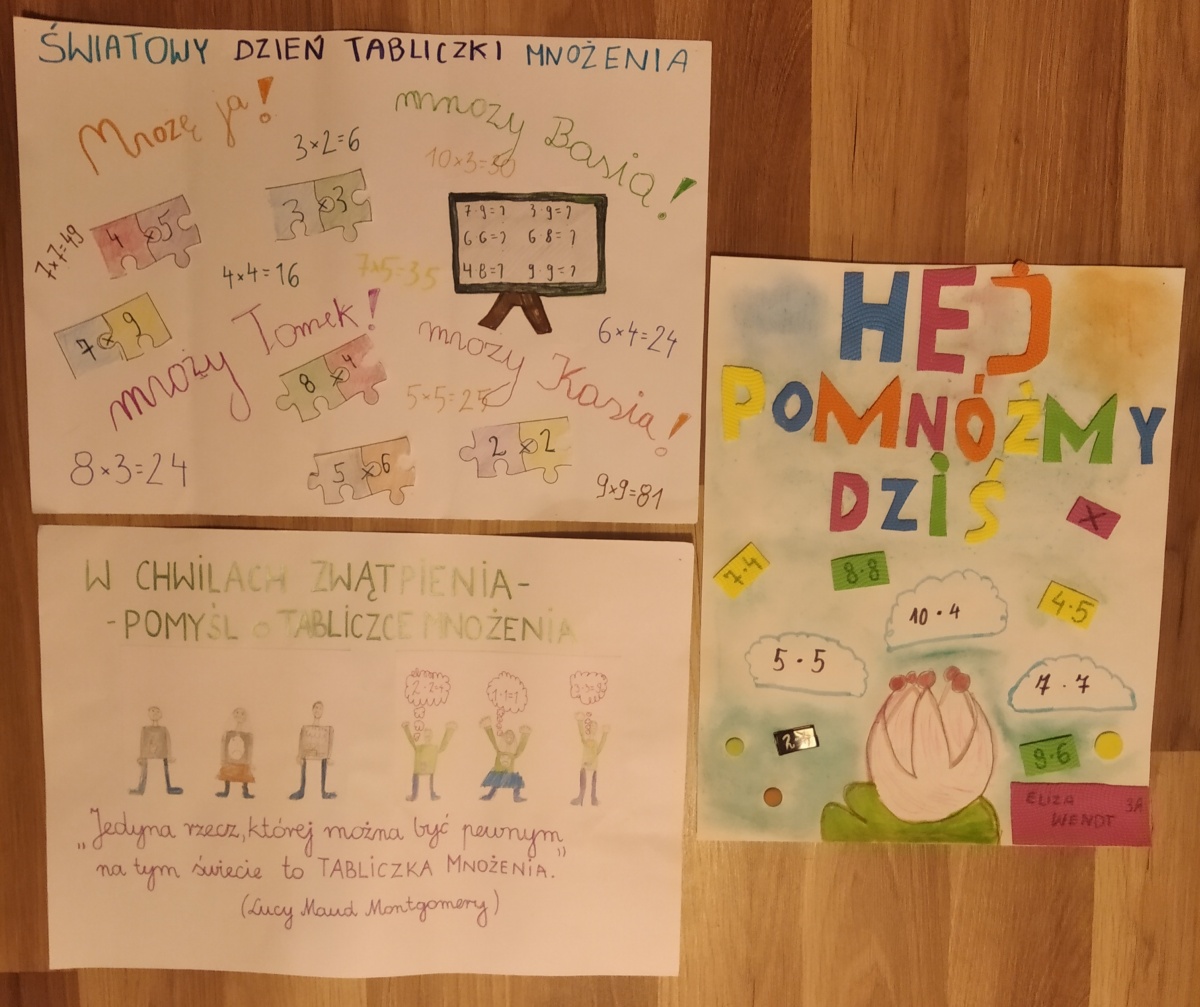 ŚWIATOWY DZIEŃ TABLICZKI MNOŻENIA
Mnożę ja!
mnoży Basia!
3×2=6
10×3=30
7·9=? 3·9=?
6·6=? 6·8=?
4·8=? 9·9=?
4 × 5
3 × 3
7×7=49
4×4=16
7×5=35
7 × 9
mnoży Tomek!
8 × 4
mnoży Kasia!
6×4=24
5×5=25
8×3=24
5 × 6
2 × 2
9×9=81
W CHWILACH ZWĄTPIENIA-
-POMYŚL o TABLICZCE MNOŻENIA
2·2=4
1·1=1
3·3=9
„Jedyna rzecz, której można być pewnym
na tym świecie to TABLICZKA MNOŻENIA.”
(Lucy Maud Montgomery)
HEJ
POMNÓŻMY
DZIŚ
X
7·4
8·8
10·4
4·5
5·5
7·7
9·6
ELIZA 3A
WENDT